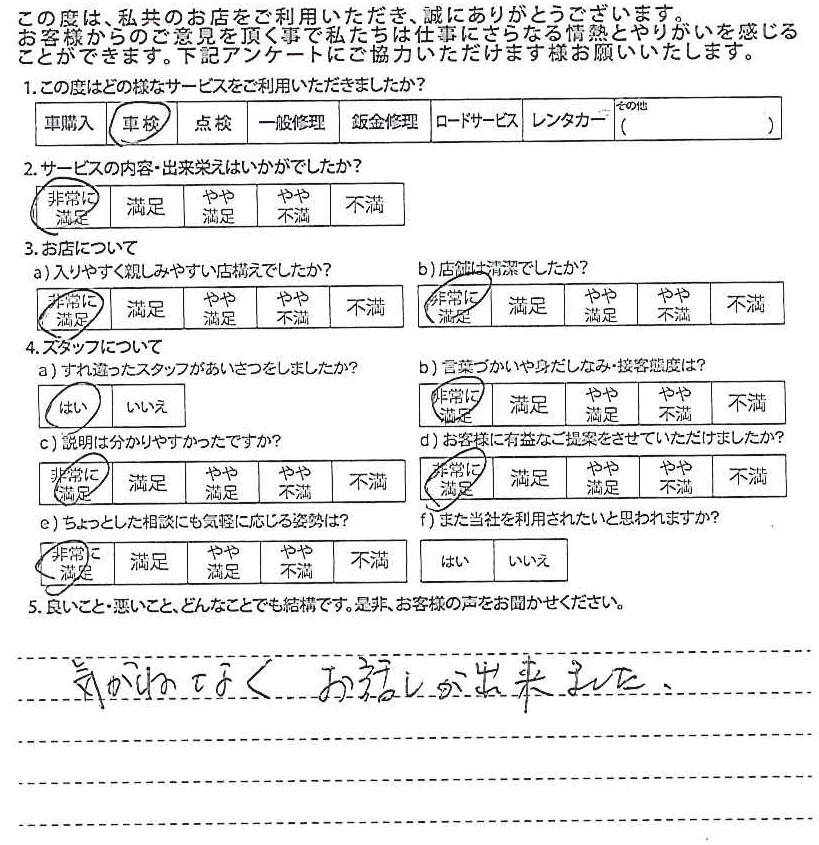 この度は、私共のお店をご利用いただき、誠にありがとうございます。
お客様からのご意見を頂く事で私たちは仕事にさらなる情熱とやりがいを感じる
ことができます。下記アンケートにご協力いただけます様お願いいたします。
1.この度はどの様なサービスをご利用いただきましたか?
車購入 車検 点検 一般修理 鈑金修理 ロードサービス レンタカー その他 ( )
2.サービスの内容・出来栄えはいかがでしたか?
非常に満足 満足 やや満足 やや不満 不満
3.お店について
a)入りやすく親しみやすい店構えでしたか? b)店舗は清潔でしたか?
非常に満足 満足 やや満足 やや不満 不満 非常に満足 満足 やや満足 やや不満 不満
4.スタッフについて
a)すれ違ったスタッフがあいさつをしましたか? b)言葉づかいや身だしなみ・接客態度は?
はい いいえ 非常に満足 満足 やや満足 やや不満 不満
c)説明は分かりやすかったですか? d)お客様に有益なご提案をさせていただけましたか?
非常に満足 満足 やや満足 やや不満 不満 非常に満足 満足 やや満足 やや不満 不満
e)ちょっとした相談にも気軽に応じる姿勢は? f)また当社を利用されたいと思われますか?
非常に満足 満足 やや満足 やや不満 不満 はい いいえ
5.良いこと・悪いこと、どんなことでも結構です。是非、お客様の声をお聞かせください。
気がねなく お話しが出来ました、